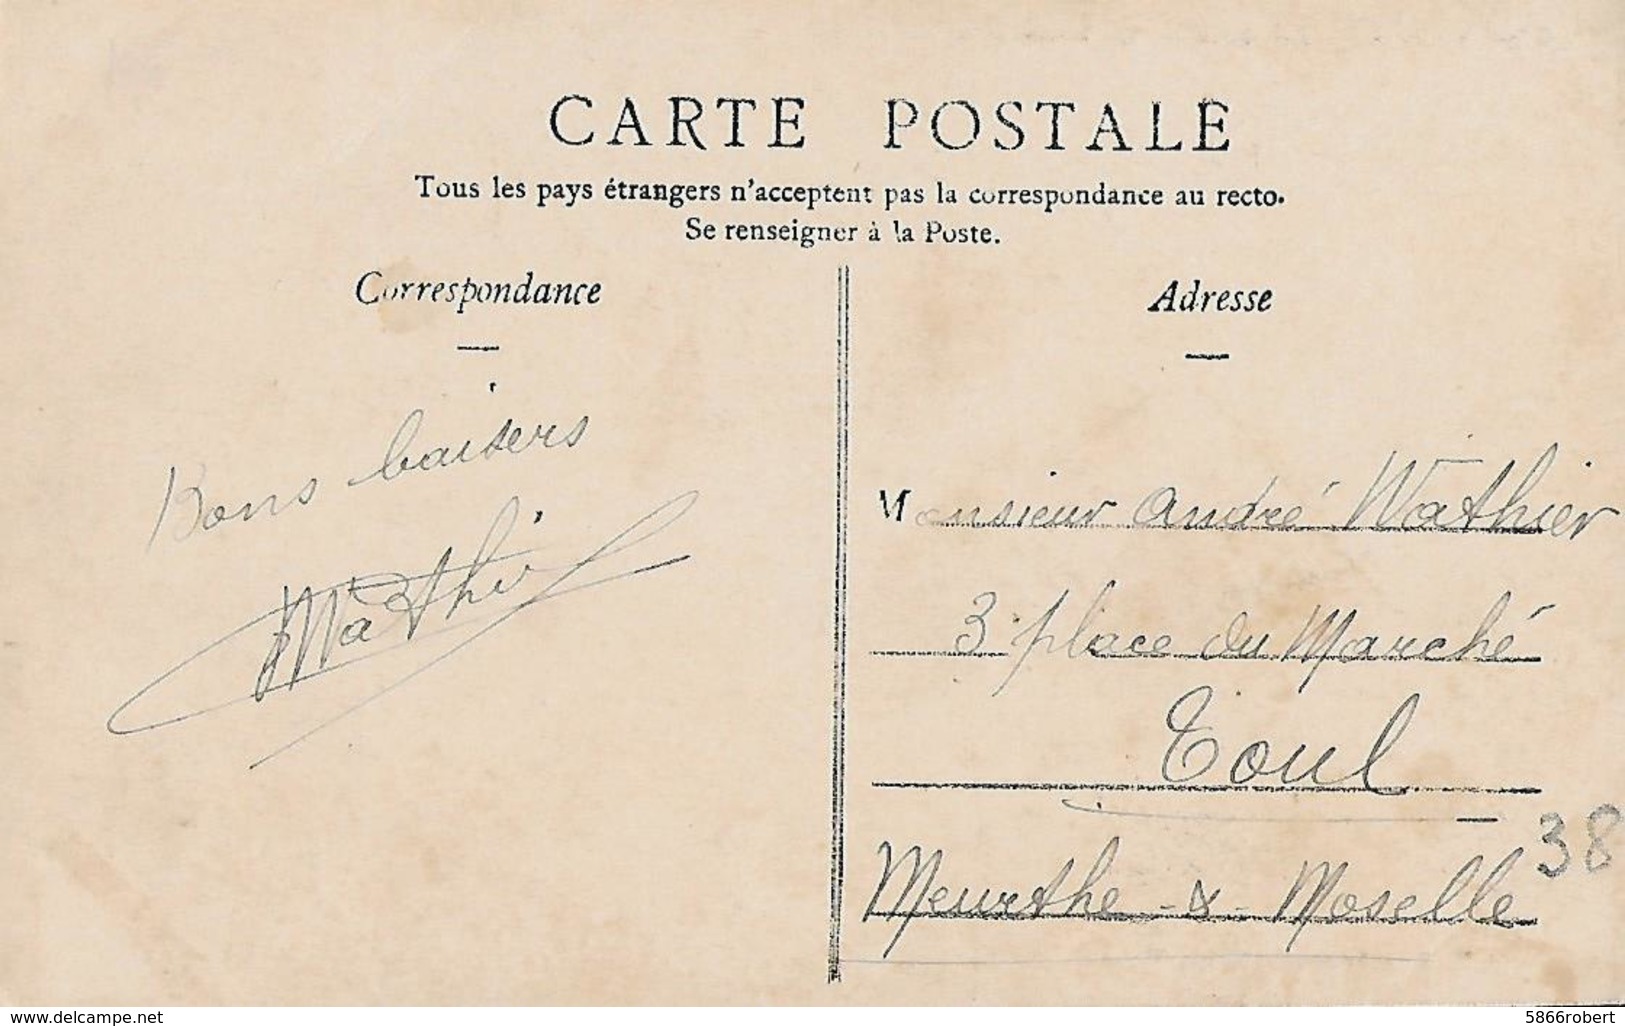 CARTE POSTALE
Tous les pays étrangers n'acceptent pas la correspondance au recto.
Se renseigner à la Poste.
Correspondance
Bons baisers
Wathi
Adresse
Monsieur André Wathier
3 place du Marché
Toul
38
Meurthe - & - Moselle
www.delcampe.net
5866robert